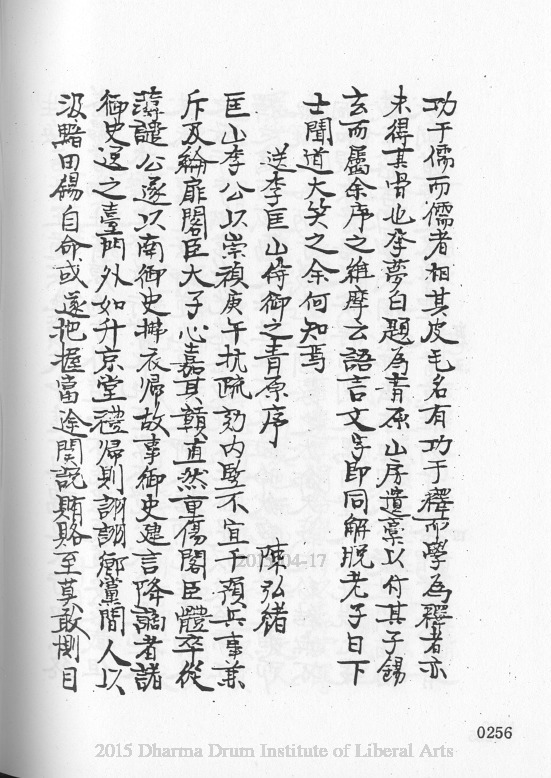 功于儒而儒者相其皮毛名有功于釋而學為釋者亦
未得其骨也李夢白題為青原山房遺稾以付其子錫
玄而屬余序之維摩云語言文字即同解脫老子曰下
士聞道大笑之余何知焉
送李匡山侍御之青原序 陳弘緒
匡山李公以崇禎庚午抗疏劾內監不宜干預兵事兼
斥及綸扉閣臣大子心嘉其贛直然重傷閣臣體卒從
薄譴公遂以南御史拂衣歸故事御史建言降謫者諸
御史送之臺門外如升京堂禮歸則詡詡鄉黨間人以
汲黯田錫自命或遂把握富途関說賄賂至莫敢惻目
2015-04-17
0256
2015 Dharma Drum Institute of Liberal Arts